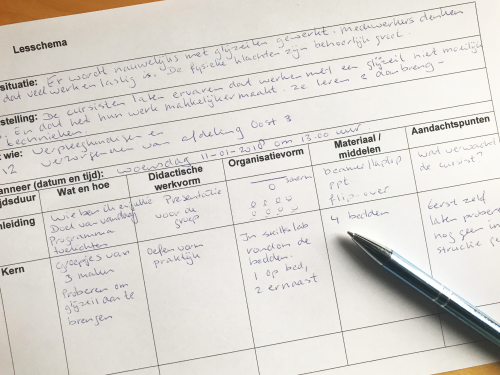 Lesschema
situatie: Er wordt nauwelijks met glijzeilen gewerkt. Medewerkers denken
dat veel werk en lastig is. De fysieke klachten zijn behoorlijk groot.
stelling: De cursisten laten ervaren dat werken met een glijzeil niet moeilijk
En dat het hun werk makkelijker maakt. Ze leren 2 aanbreng-
technieken
t wie: Verpleegkundigen en
12 verzorgenden van afdeling Oost 3
anneer (datum en tijd): woensdag 11-01-2018 om 13:00 uur
ijdsduur
Wat en hoe
Didactische
werkvorm
Organisatievorm
Materiaal /
middelen
Aandachtspunten
nleiding
Wie ben ik en jullie
Doel van vandaag
Programma
toelichten
Presentatie
voor de
groep
scherm
beamer/laptop
ppt
flip-over
wat verwacht
de cursist?
Kern
Groepjes van
3 maken
Proberen om
glijzeil aan te
brengen
oefenvorm
praktijk
In skillslab
rondom de
bedden.
1 op bed,
2 ernaast
4 bedden
Eerst zelf
laten proberen
nog geen in
structie